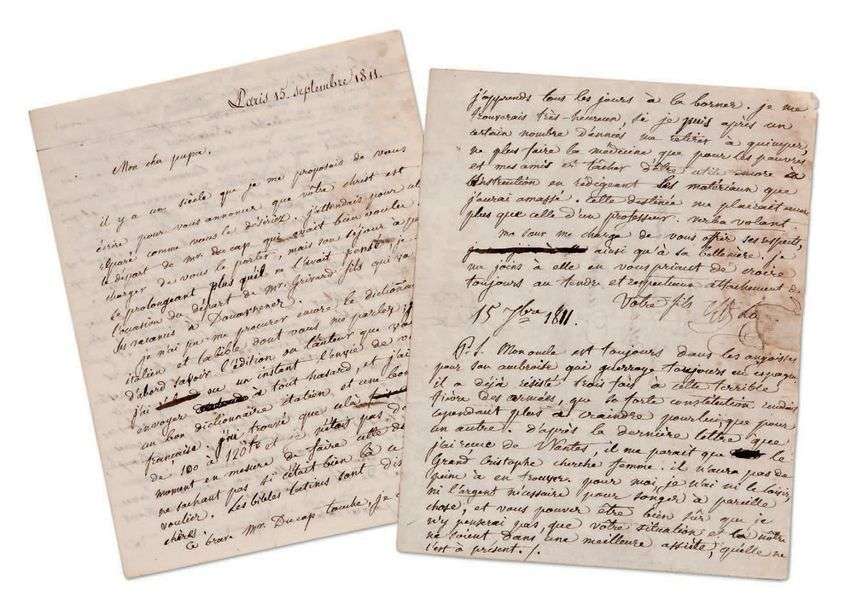 Paris 15. septembre 1811.
Mon cher papa.
il y a un siècle que je me proposais de vous
écrire pour vous annoncer que votre christ est
réparé comme vous le désiriez. j'attendais pour cela
le départ de mr. du cap qui avait bien voulu se
charger de vous le porter, mais son séjour à
se prolongeant plus qu'il ne l'avait pensé je
l'occasion du départ de mr. Grivard fils qui va
les vacances à Douarnenez.
je n'ai pu me procurer encore le dictionnaire
italien et la bible dont vous me parlez; il
d'abord savoir l'édition ou l'auteur que vous
j'ai ou un instant l'envie de vous
envoyer à tout hasard, et j'ai
un bon dictionnaire italien, et une
française, j'ai trouvé que cela
de 100 à 120 et je n'étais pas
moment en mesure de faire cette
ne sachant pas si c'était bien là ce
vouliez. Les bibles latines sont
chères.
Ce brave Mr. Ducap tombe, je
j'apprends tous les jours à la borner. je me
trouverais très-heureux, si je puis après un
certain nombre d'années me retirer à quimper,
ne plus faire la médecine que pour les pauvres
et mes amis et tacher d'être utile encore à
l'instruction en rédigeant les matériaux que
j'aurai amassé. cette destinée me plairait
plus que celle d'un professeur.
ma sœur me charge de vous offrir ses respects,
ainsi qu'à sa belle mère. je
me joins à elle en vous priant de croire
toujours au tendre et respectueux attachement de
Votre fils
15 7bre 1811.
P.S. Mon oncle est toujours dans les angoisses
pour son ambroise qui guerroye toujours en espagne
il a déjà résisté trois fois à cette terrible
fièvre des armées, que sa forte constitution rendait
cependant plus à craindre pour lui, que pour
un autre. d'après la dernière lettre que
j'ai reçue de Nantes, il me parait que le
Grand Cristophe cherche femme. il n'aura pas de
peine à en trouver. pour moi, je n'ai ni le loisir,
ni l'argent nécessaire pour songer à pareille
chose, et vous pouvez être bien sûr que je
n'y penserai pas, que votre situation et la nôtre
ne soient dans une meilleure assiete, qu'elle ne
l'est à présent./.